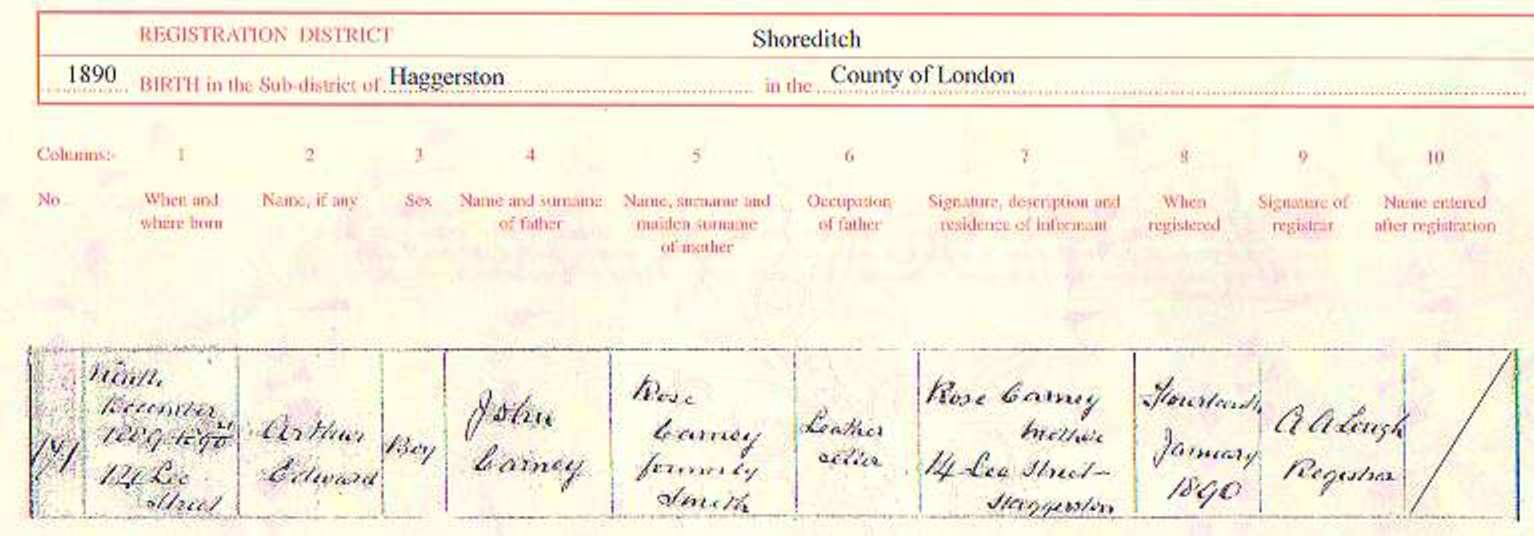 REGISTRATION DISTRICT Shoreditch
1890 BIRTH in the Sub-district of Haggerston in the County of London
Columns:- 1 2 3 4 5 6 7 8 9 10
No When and where born Name, if any Sex Name and surname of father Name, surname and maiden surname of mother Occupation of father Signature, description and residence of informant When registered Signature of registrar Name entered after registration
Ninth
December
1889
14 Lee
Street
Arthur
Edward
Boy
John
Carney
Rose
Carney
formerly
Smith
Leather
Rose Carney
Mother
14 Lee Street
Haggerston
Fourteenth
January
1890
Registrar